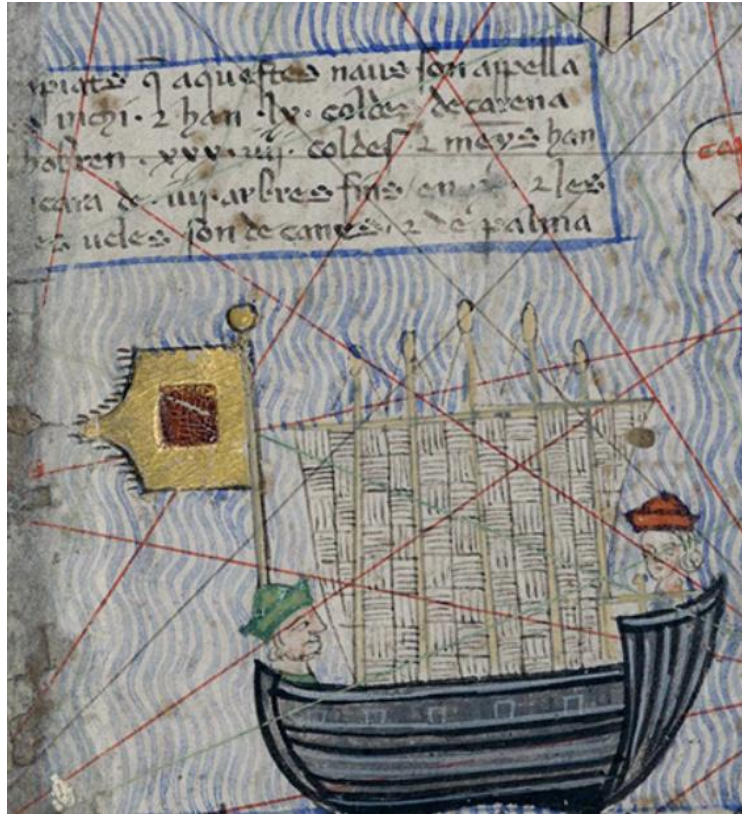 piats q̃ aquestes naus son appella
inchi · 2 han · lx · coldes de carena
hobren · xxx · iiij · coldes 2 meys han
cara de iiij · arbres fins en 2 les
ueles son de canyes · 2 de palma